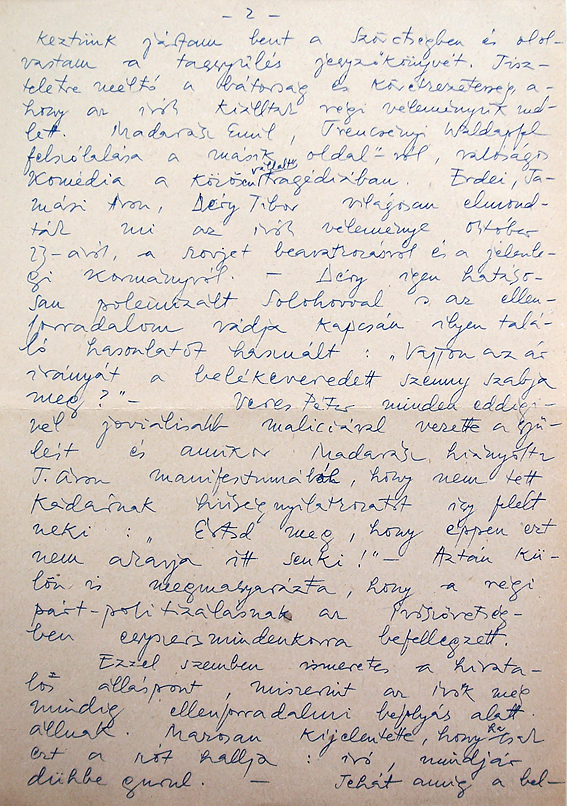 - 2 -
keztünk jártam bent a Szövetségben és olol-
vastam a taggyűlés jegyzőkönyvét. Tisz-
teletre méltó a bátorság és következetesség, a-
hogy az irók kiálltak régi véleményük mel-
lett. Madarász Emil, Trencsényi Waldapfel
felszólalása a másik oldal"-ról, valóságos
komédia a közösen vállalt tragédiában. Erdei, Ta-
mási Áron, Déry Tibor világosan elmond-
ták mi az irók véleménye október
23-áról, a szovjet beavatkozásról és a jelenle-
gi kormányról. — Déry igen hatáso-
san polemizált Solohovval s az ellen-
forradalom vádja kapcsán ilyen talá-
ló hasonlatot használt : „Vajjon az ár
irányát a belékeveredett szenny szabja
meg?"- Veres Péter minden eddigi-
nél joviálisabb maliciával vezette a gyű-
lést és amikor Madarász hiányolta
T. Áron manifesztumából, hogy nem tett
Kádárnak hűségnyilatkozatot így felelt
neki : „Értsd meg, hogy éppen ezt
nem akarja itt senki!"— Aztán kü-
lön is megmagyarázta, hogy a régi
párt-politizálásnak az Irószövetség-
ben egyszersmindenkorra befellegzett.
Ezzel szemben ismeretes a hivata-
los álláspont, miszerint az irók még
mindig ellenforradalmi befolyás alatt
állnak. Marosán kijelentette, hogy ha csak
ezt a szót hallja : iró, mindjár
dühbe gurul. — Tehát amig a bel-